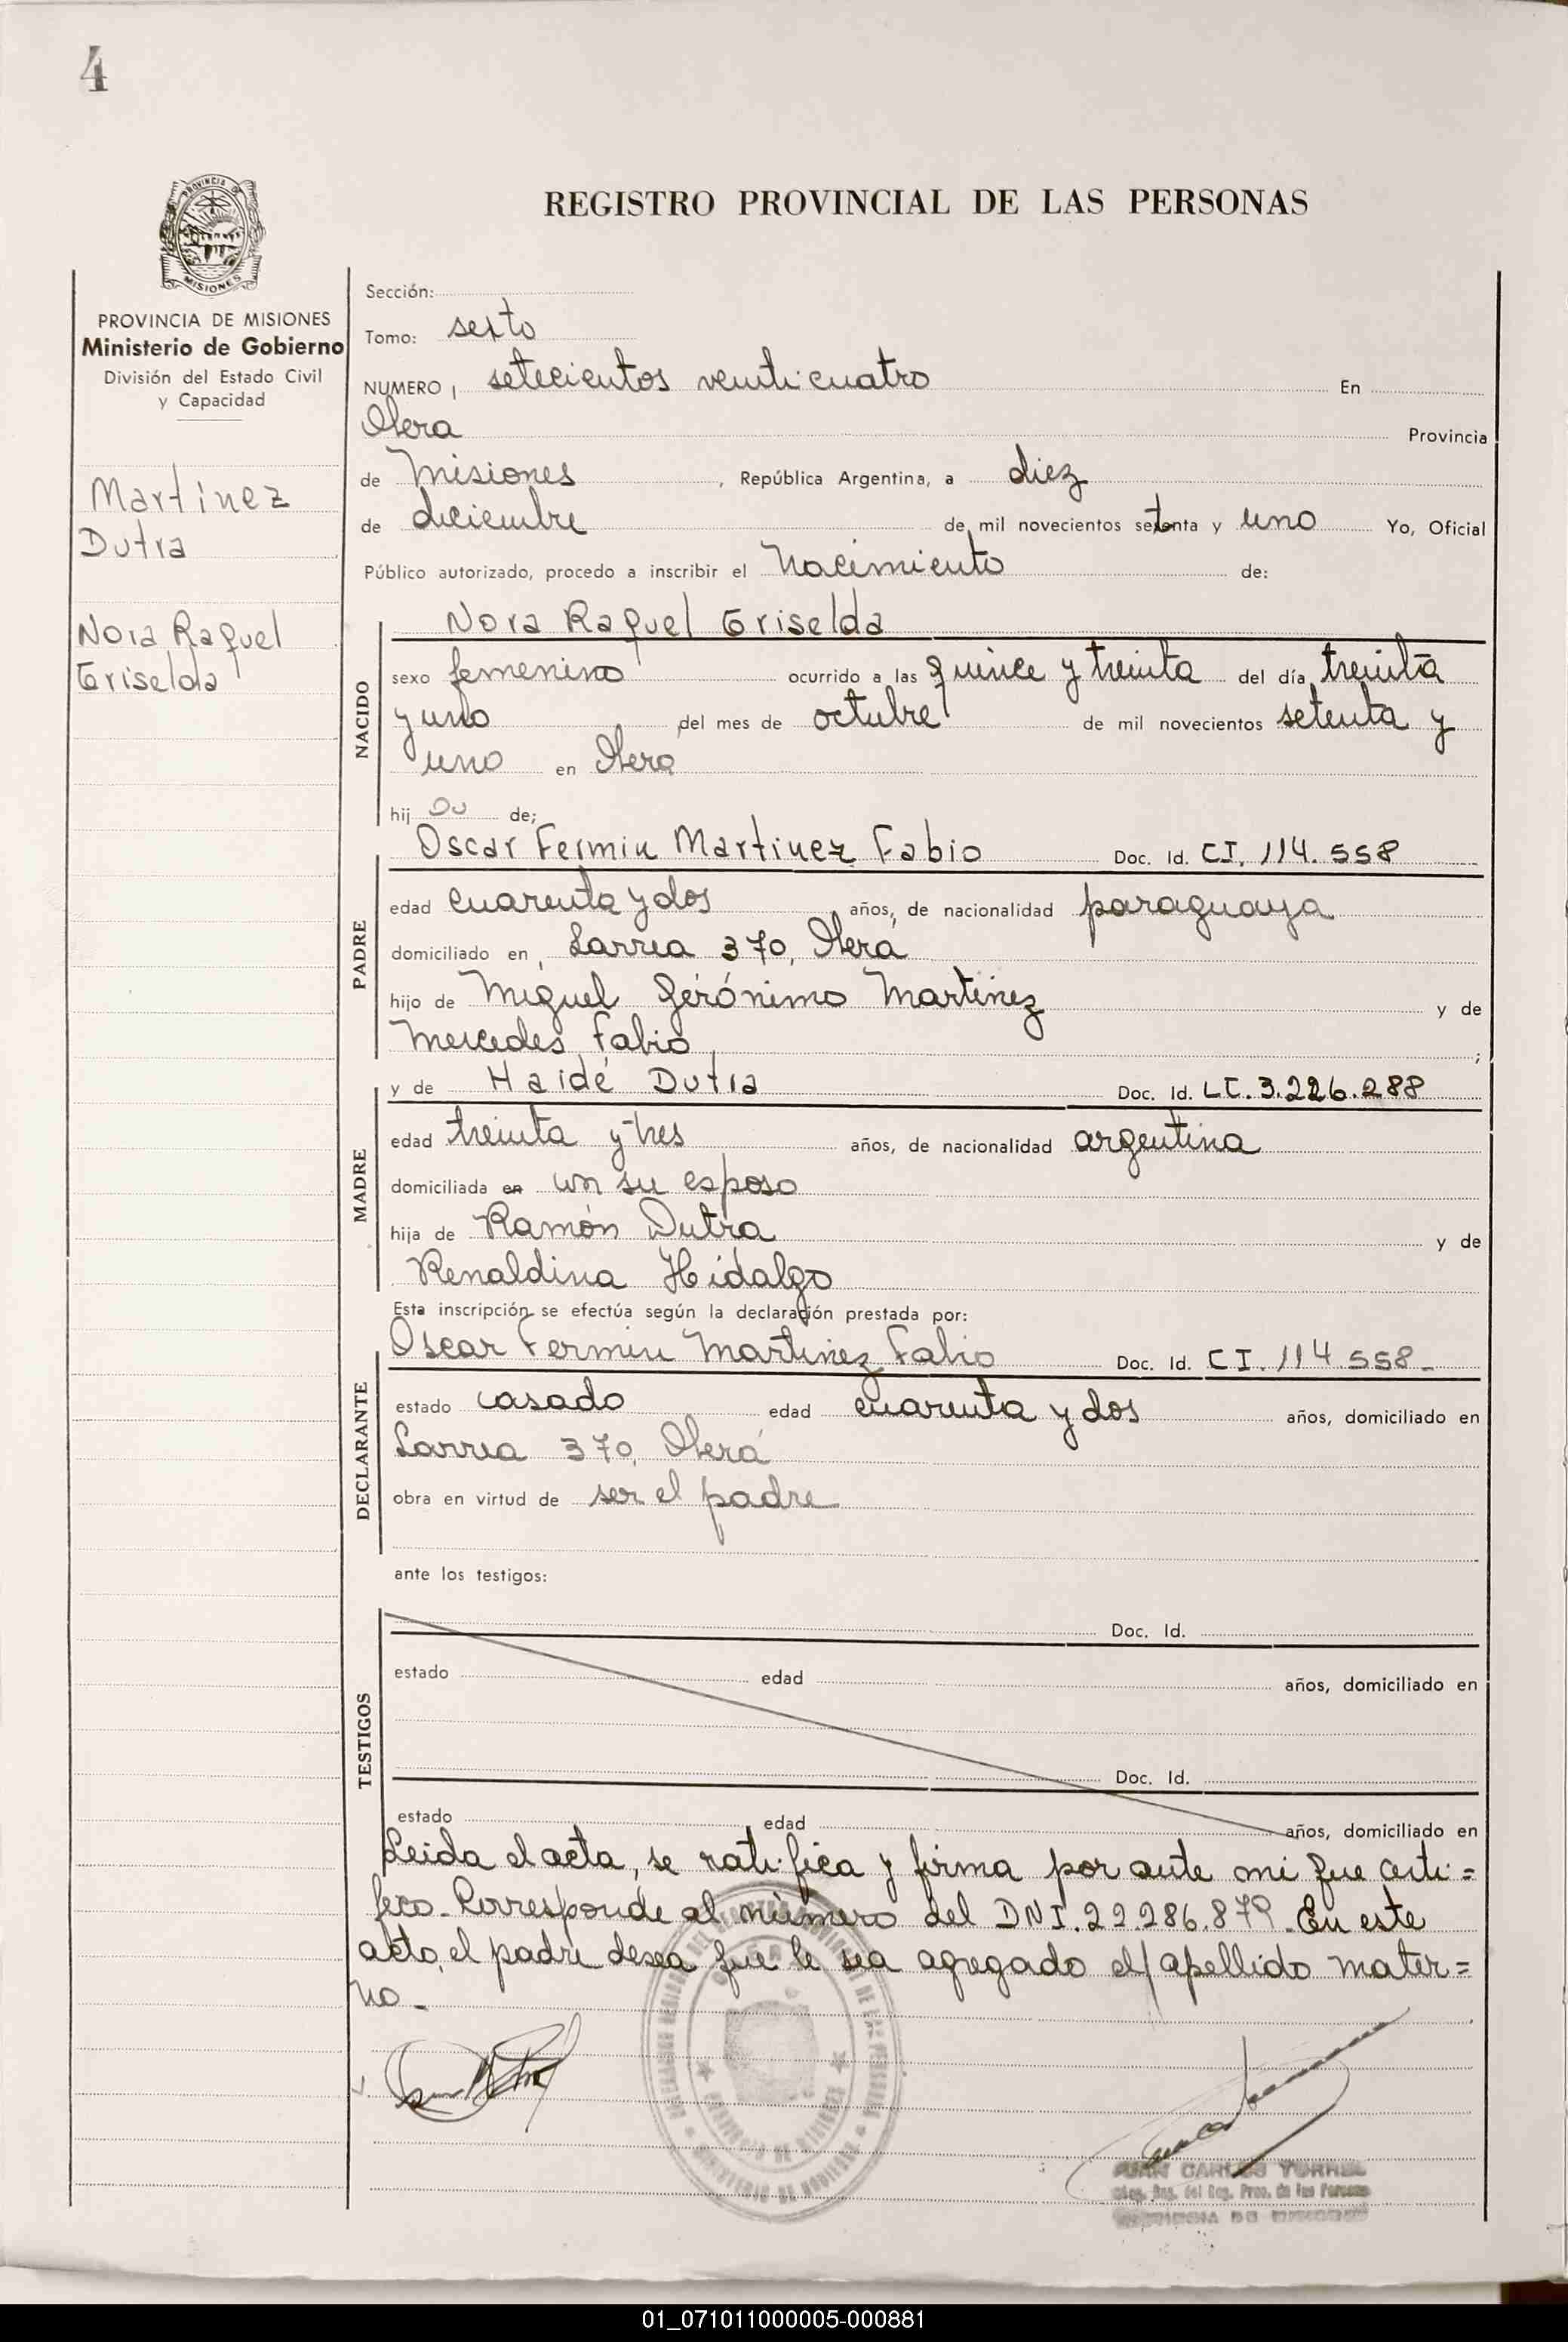 4
PROVINCIA DE
MISIONES
REGISTRO PROVINCIAL DE LAS PERSONAS
PROVINCIA DE MISIONES
Ministerio de Gobierno
División del Estado Civil
y Capacidad
Martínez
Dutra
Nora Raquel
Griselda
Sección:
Tomo: sexto
NUMERO, setecientos veinticuatro En
Oberá Provincia
de Misiones, República Argentina, a diez
de diciembre de mil novecientos setenta y uno Yo, Oficial
Público autorizado, procedo a inscribir el Nacimiento de:
NACIDO
Nora Raquel Griselda
sexo femenino ocurrido a las quince y treinta del día treinta
y uno del mes de octubre de mil novecientos setenta y
uno en Oberá
hij de;
PADRE
Oscar Fermin Martinez Fabio Doc. Id. CI. 114.558
edad cuarenta y dos años, de nacionalidad paraguaya
domiciliado en, Larrea 370, Oberá
hijo de Miguel Gerónimo Martínez y de
Mercedes Fabio;
MADRE
y de Haidé Dutra Doc. Id. LC. 3.226.288
edad treinta y tres años, de nacionalidad argentina
domiciliada en con su esposo
hija de Ramón Dutra y de
Renaldina Hidalgo
Esta inscripción se efectúa según la declaración prestada por:
DECLARANTE
Oscar Fermin Martinez Fabio Doc. Id. CI. 114.558-
estado casado edad cuarenta y dos años, domiciliado en
Larrea 370, Oberá
obra en virtud de ser el padre
ante los testigos:
TESTIGOS
Doc. Id.
estado edad años, domiciliado en
Doc. Id.
estado edad años, domiciliado en
Leida el acta, se ratifica y firma por ante mi que certi=
fico. Corresponde al número del DNI. 22.286.879. En este
acto, el padre desea que le sea agregado el apellido mater=
no-
JUAN CARLOS
01_071011000005-000881